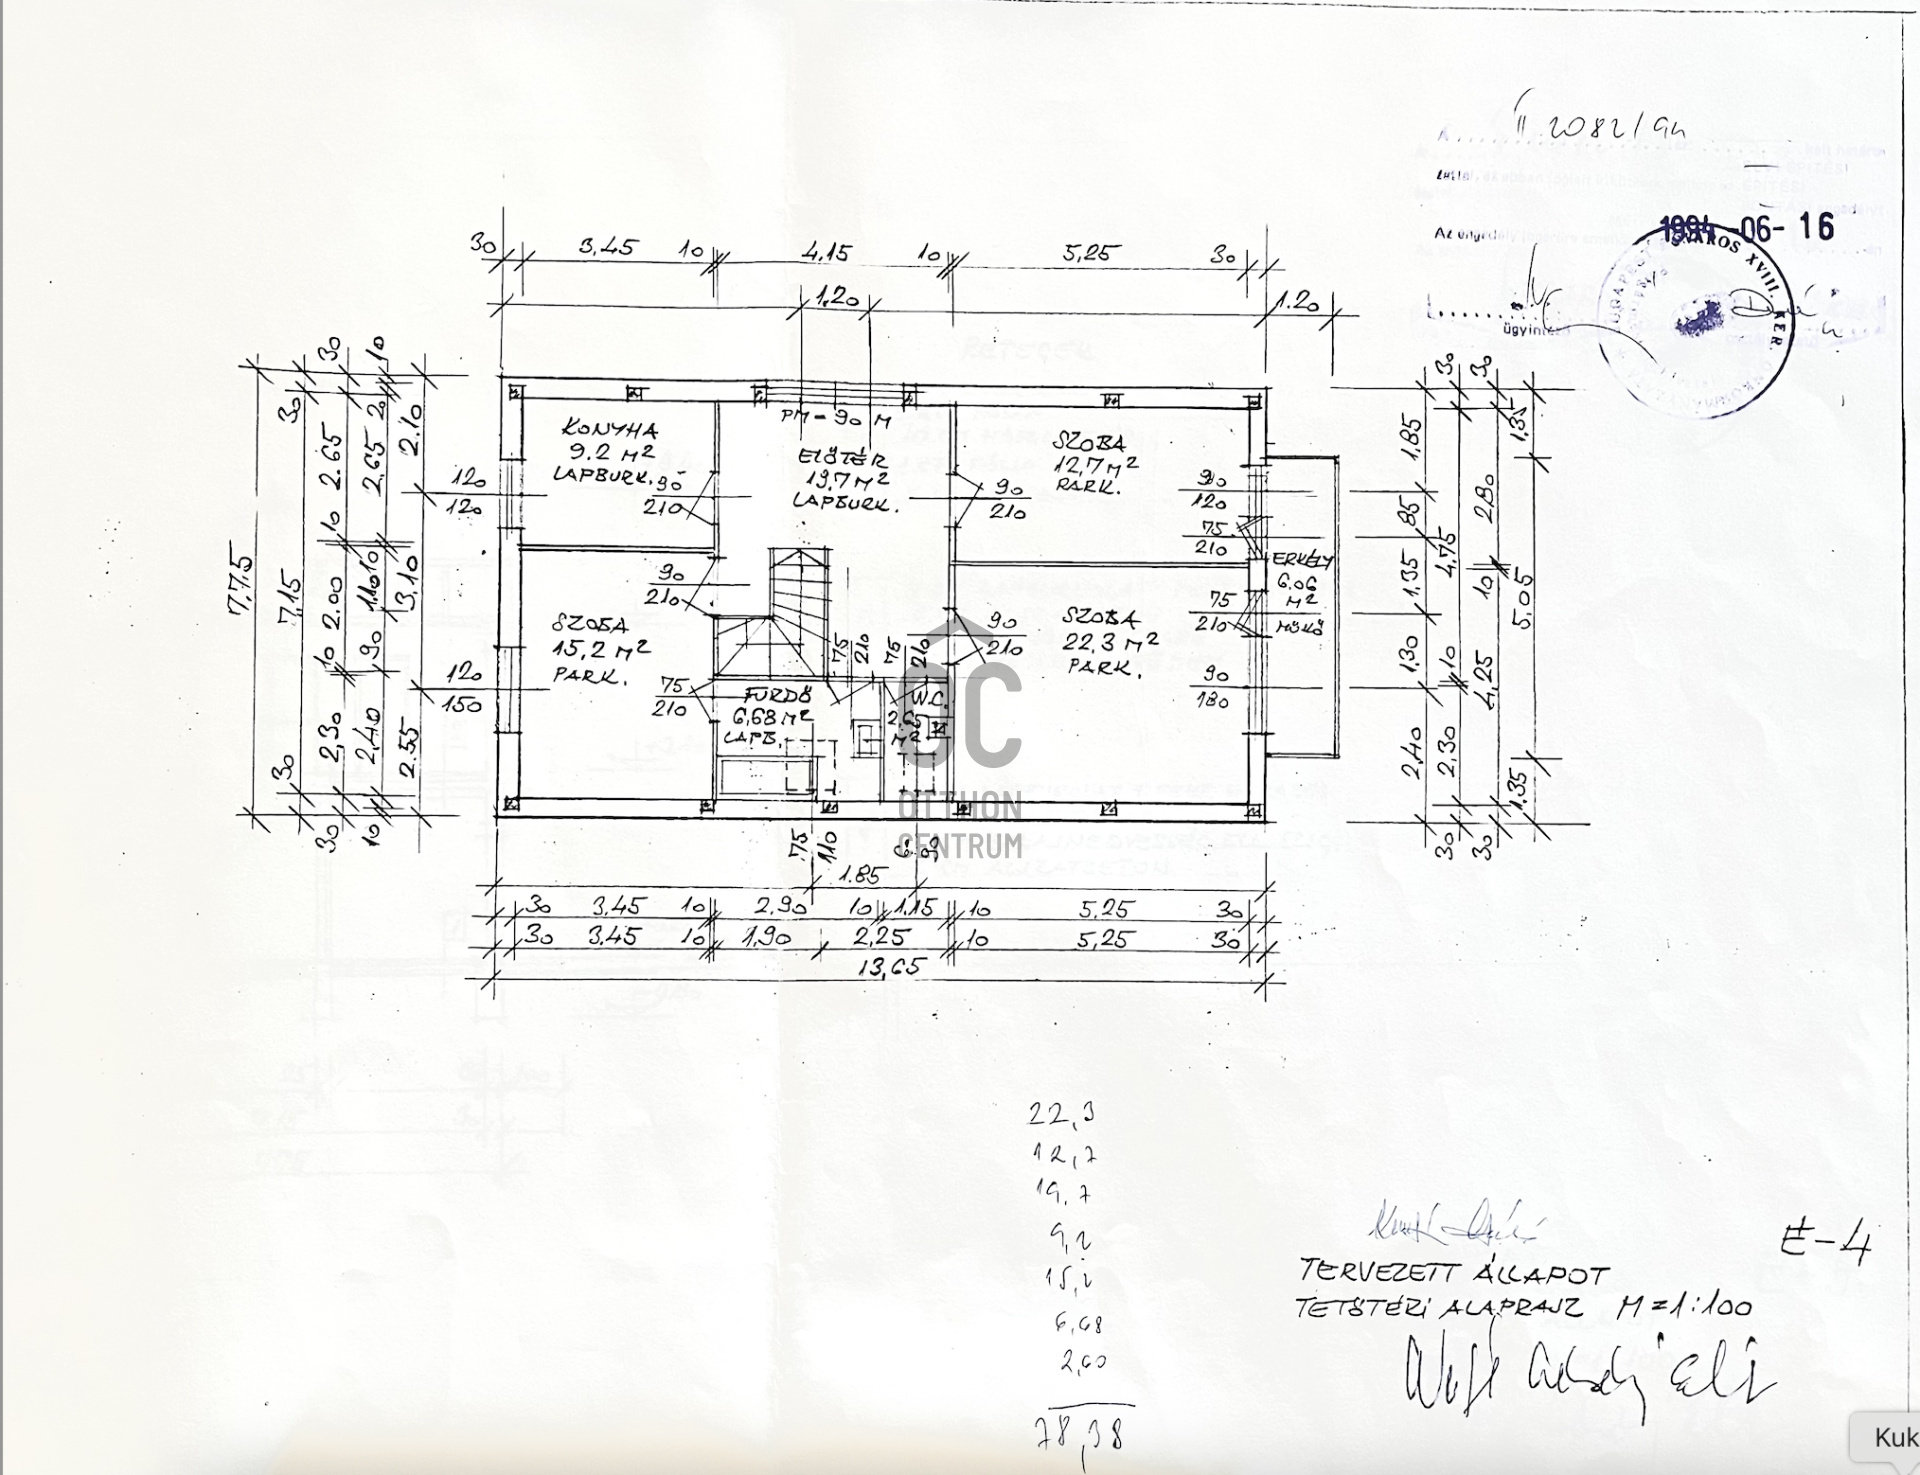 II 2082/94
1994-06-16
Az
ügyintéző
VÁROS XVIII. KER.
30 3,45 10 4,15 10 5,25 30
1,20 1.20
7,75
30 7,15 30
30 2.65 10 2.00 10 2,30 30
10 2.65 10 90 2,40 10
2.10 3,10 2.55
120
120
120
150
KONYHA
9.2 M²
LAPBURK.
90
210
PM = 90 M
ELŐTÉR
19,7 M²
LAPBURK.
SZOBA
12,7 M²
PARK.
90
210
90
120
75
210
ERKÉLY
6,06
M²
MŰKŐ
90
210
SZOBA
15,2 M²
PARK.
75
210
75
210
75
210
FÜRDŐ
6,68 M²
LAPB.
W.C.
M²
90
210
SZOBA
22,3 M²
PARK.
75
210
90
180
OC
OTTHON
CENTRUM
1,85 85 1,35 1,30 2,40
30 4,75 10 2,30 30
30 2.80 10 4,25 30
1,35 5.05 1.35
75
110
1.85
30 3,45 10 2,90 10 1,15 10 5,25 30
30 3,45 10 1,90 2,25 10 5,25 30
13,65
22,3
12,7
19,7
9,2
15,2
6,68
2,60
78,38
É-4
TERVEZETT ÁLLAPOT
TETŐTÉRI ALAPRAJZ M=1:100
Kuk